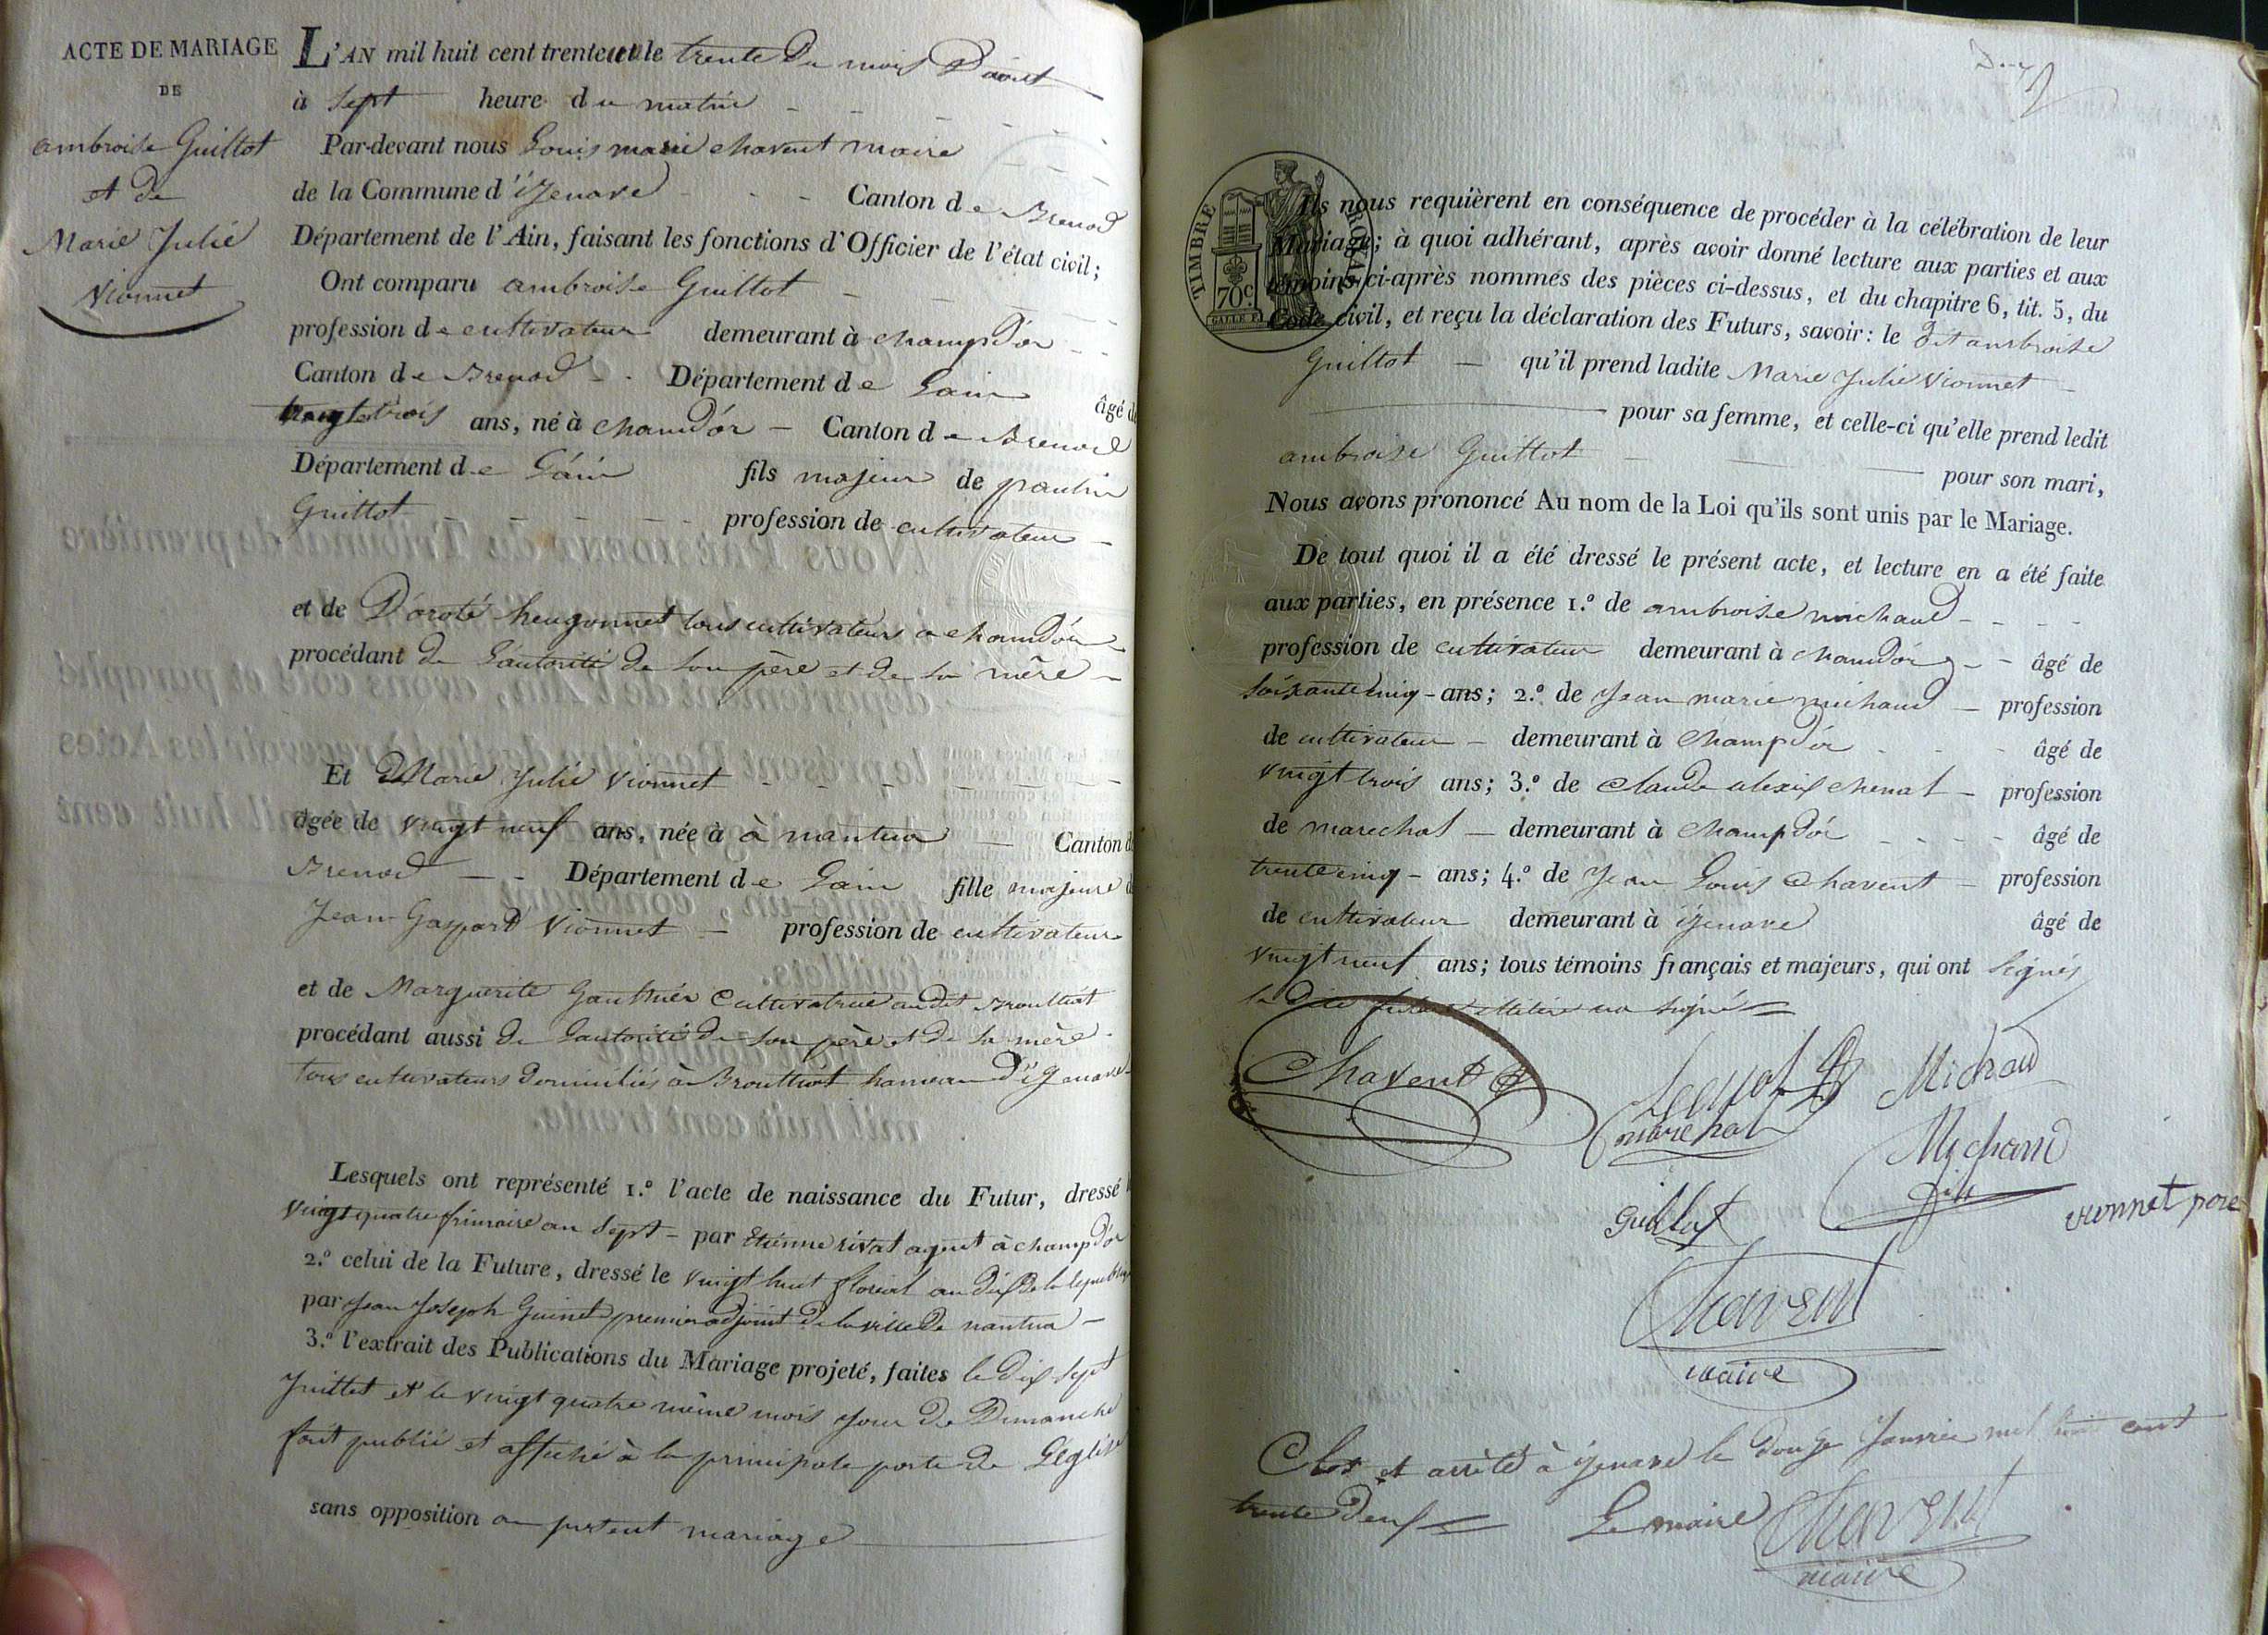 ACTE DE MARIAGE
DE
ambroise Guillot
et de
Marie Julie
Vionnet
L'AN mil huit cent trente un le trente du mois D'aout
à sept heure du matin
Par-devant nous Louis marie chavent maire
de la Commune d'izenave Canton de Brenod
Département de l'Ain, faisant les fonctions d'Officier de l'état civil;
Ont comparu ambroise Guillot
profession de cultivateur demeurant à champdor
Canton de Brenod Département de Lain âgé de
trois ans, né à chamdor Canton de Brenod
Département de Lain fils majeur de paulin
Guillot profession de cultivateur
et de Doroté heugonnet tous cultivateurs a chamdor
procédant de Lautorité de son père et de sa mère
Et de Marie Julie Vionnet
âgée de vingt neuf ans, née à à nantua Canton de
Brenod Département de Lain fille majeure de
Jean Gaspard Vionnet profession de cultivateur
et de Marguerite Gauthier Cultivatrice audit
procédant aussi de Lautorité de son père et de sa mère
tous cultivateurs domiciliés à hameau D'izenave
Lesquels ont représenté 1.º l'acte de naissance du Futur, dressé
vingt quatre frimaire an sept par Etienne rivat agent à champdor
2.º celui de la Future, dressé le vingt huit floreal an dix de la republique
par Jean Joseph Guinet premier adjoint de la ville de nantua
3.º l'extrait des Publications du Mariage projeté, faites le dix sept
Juillet et le vingt quatre même mois jour de Dimanche
fait publié et affiché à la principale porte de L'église
sans opposition au present mariage
TIMBRE ROYAL
70c.
Ils nous requièrent en conséquence de procéder à la célébration de leur
Mariage; à quoi adhérant, après avoir donné lecture aux parties et aux
témoins ci-après nommés des pièces ci-dessus, et du chapitre 6, tit. 5, du
Code civil, et reçu la déclaration des Futurs, savoir: le dit ambroise
Guillot qu'il prend ladite Marie Julie Vionnet
pour sa femme, et celle-ci qu'elle prend ledit
ambroise Guillot pour son mari,
Nous avons prononcé Au nom de la Loi qu'ils sont unis par le Mariage.
De tout quoi il a été dressé le présent acte, et lecture en a été faite
aux parties, en présence 1.º de ambroise michaud
profession de cultivateur demeurant à chamdor âgé de
soixante cinq ans; 2.º de Jean marie michaud profession
de cultivateur demeurant à champdor âgé de
vingt trois ans; 3.º de Claude alexis chenal profession
de marechal demeurant à champdor âgé de
trente cinq ans; 4.º de Jean Louis Chavent profession
de cultivateur demeurant à izenave âgé de
vingt neuf ans; tous témoins français et majeurs, qui ont signés
Chavent Michaud
marechal
Michaud
Guillot vionnet pere
Chavent
maire
Clos et arrêté à izenave le douze Janvier mil huit cent
trente deux Le maire Chavent
maire